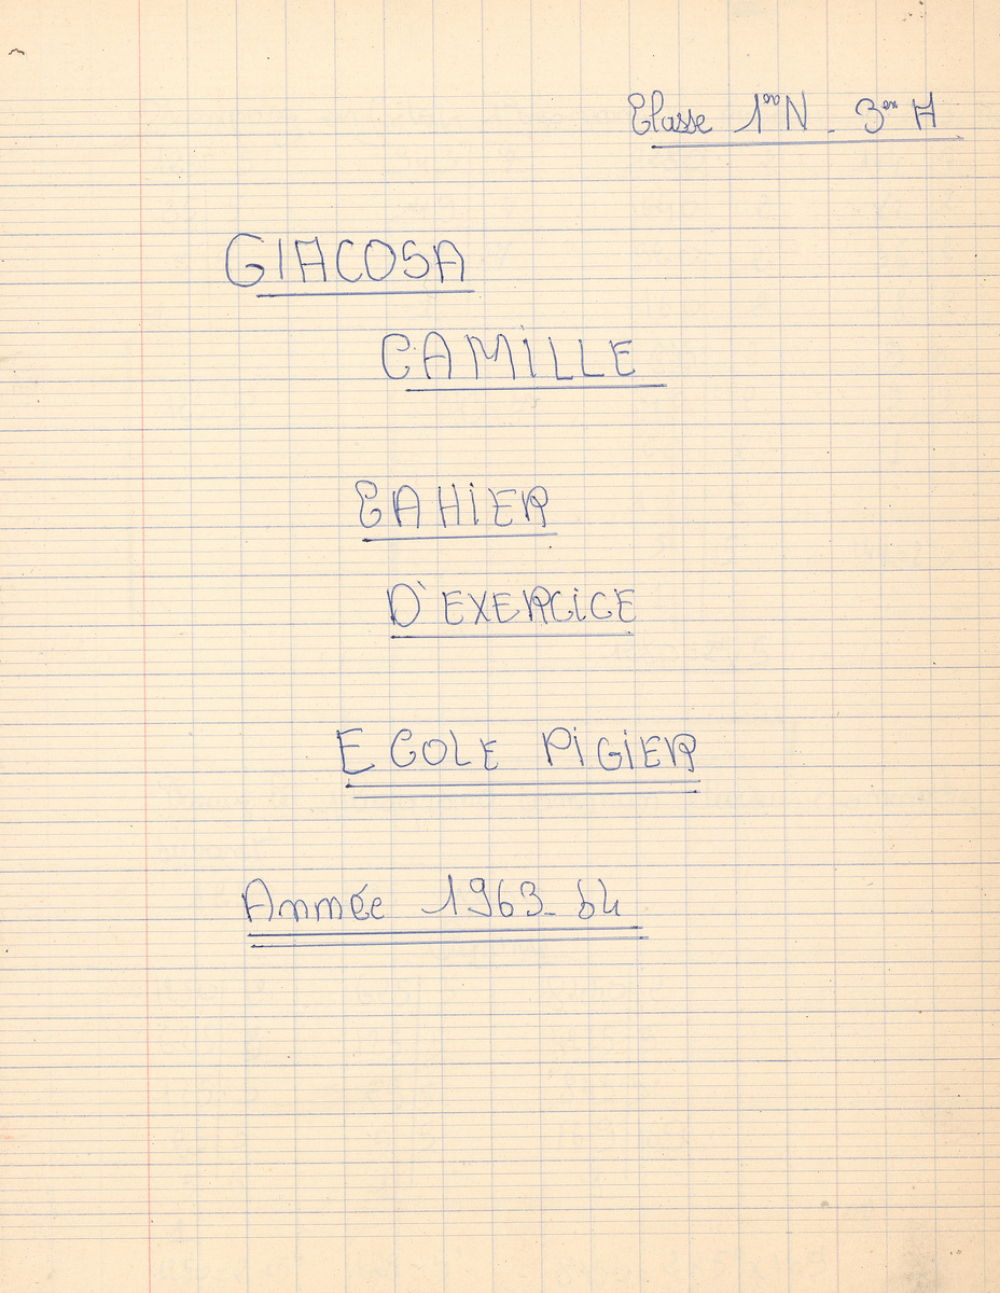 Classe 1ère N - 3em A
GIACOSA
CAMILLE
CAHIER
D'EXERCICE
ECOLE PIGIER
Année 1963-64